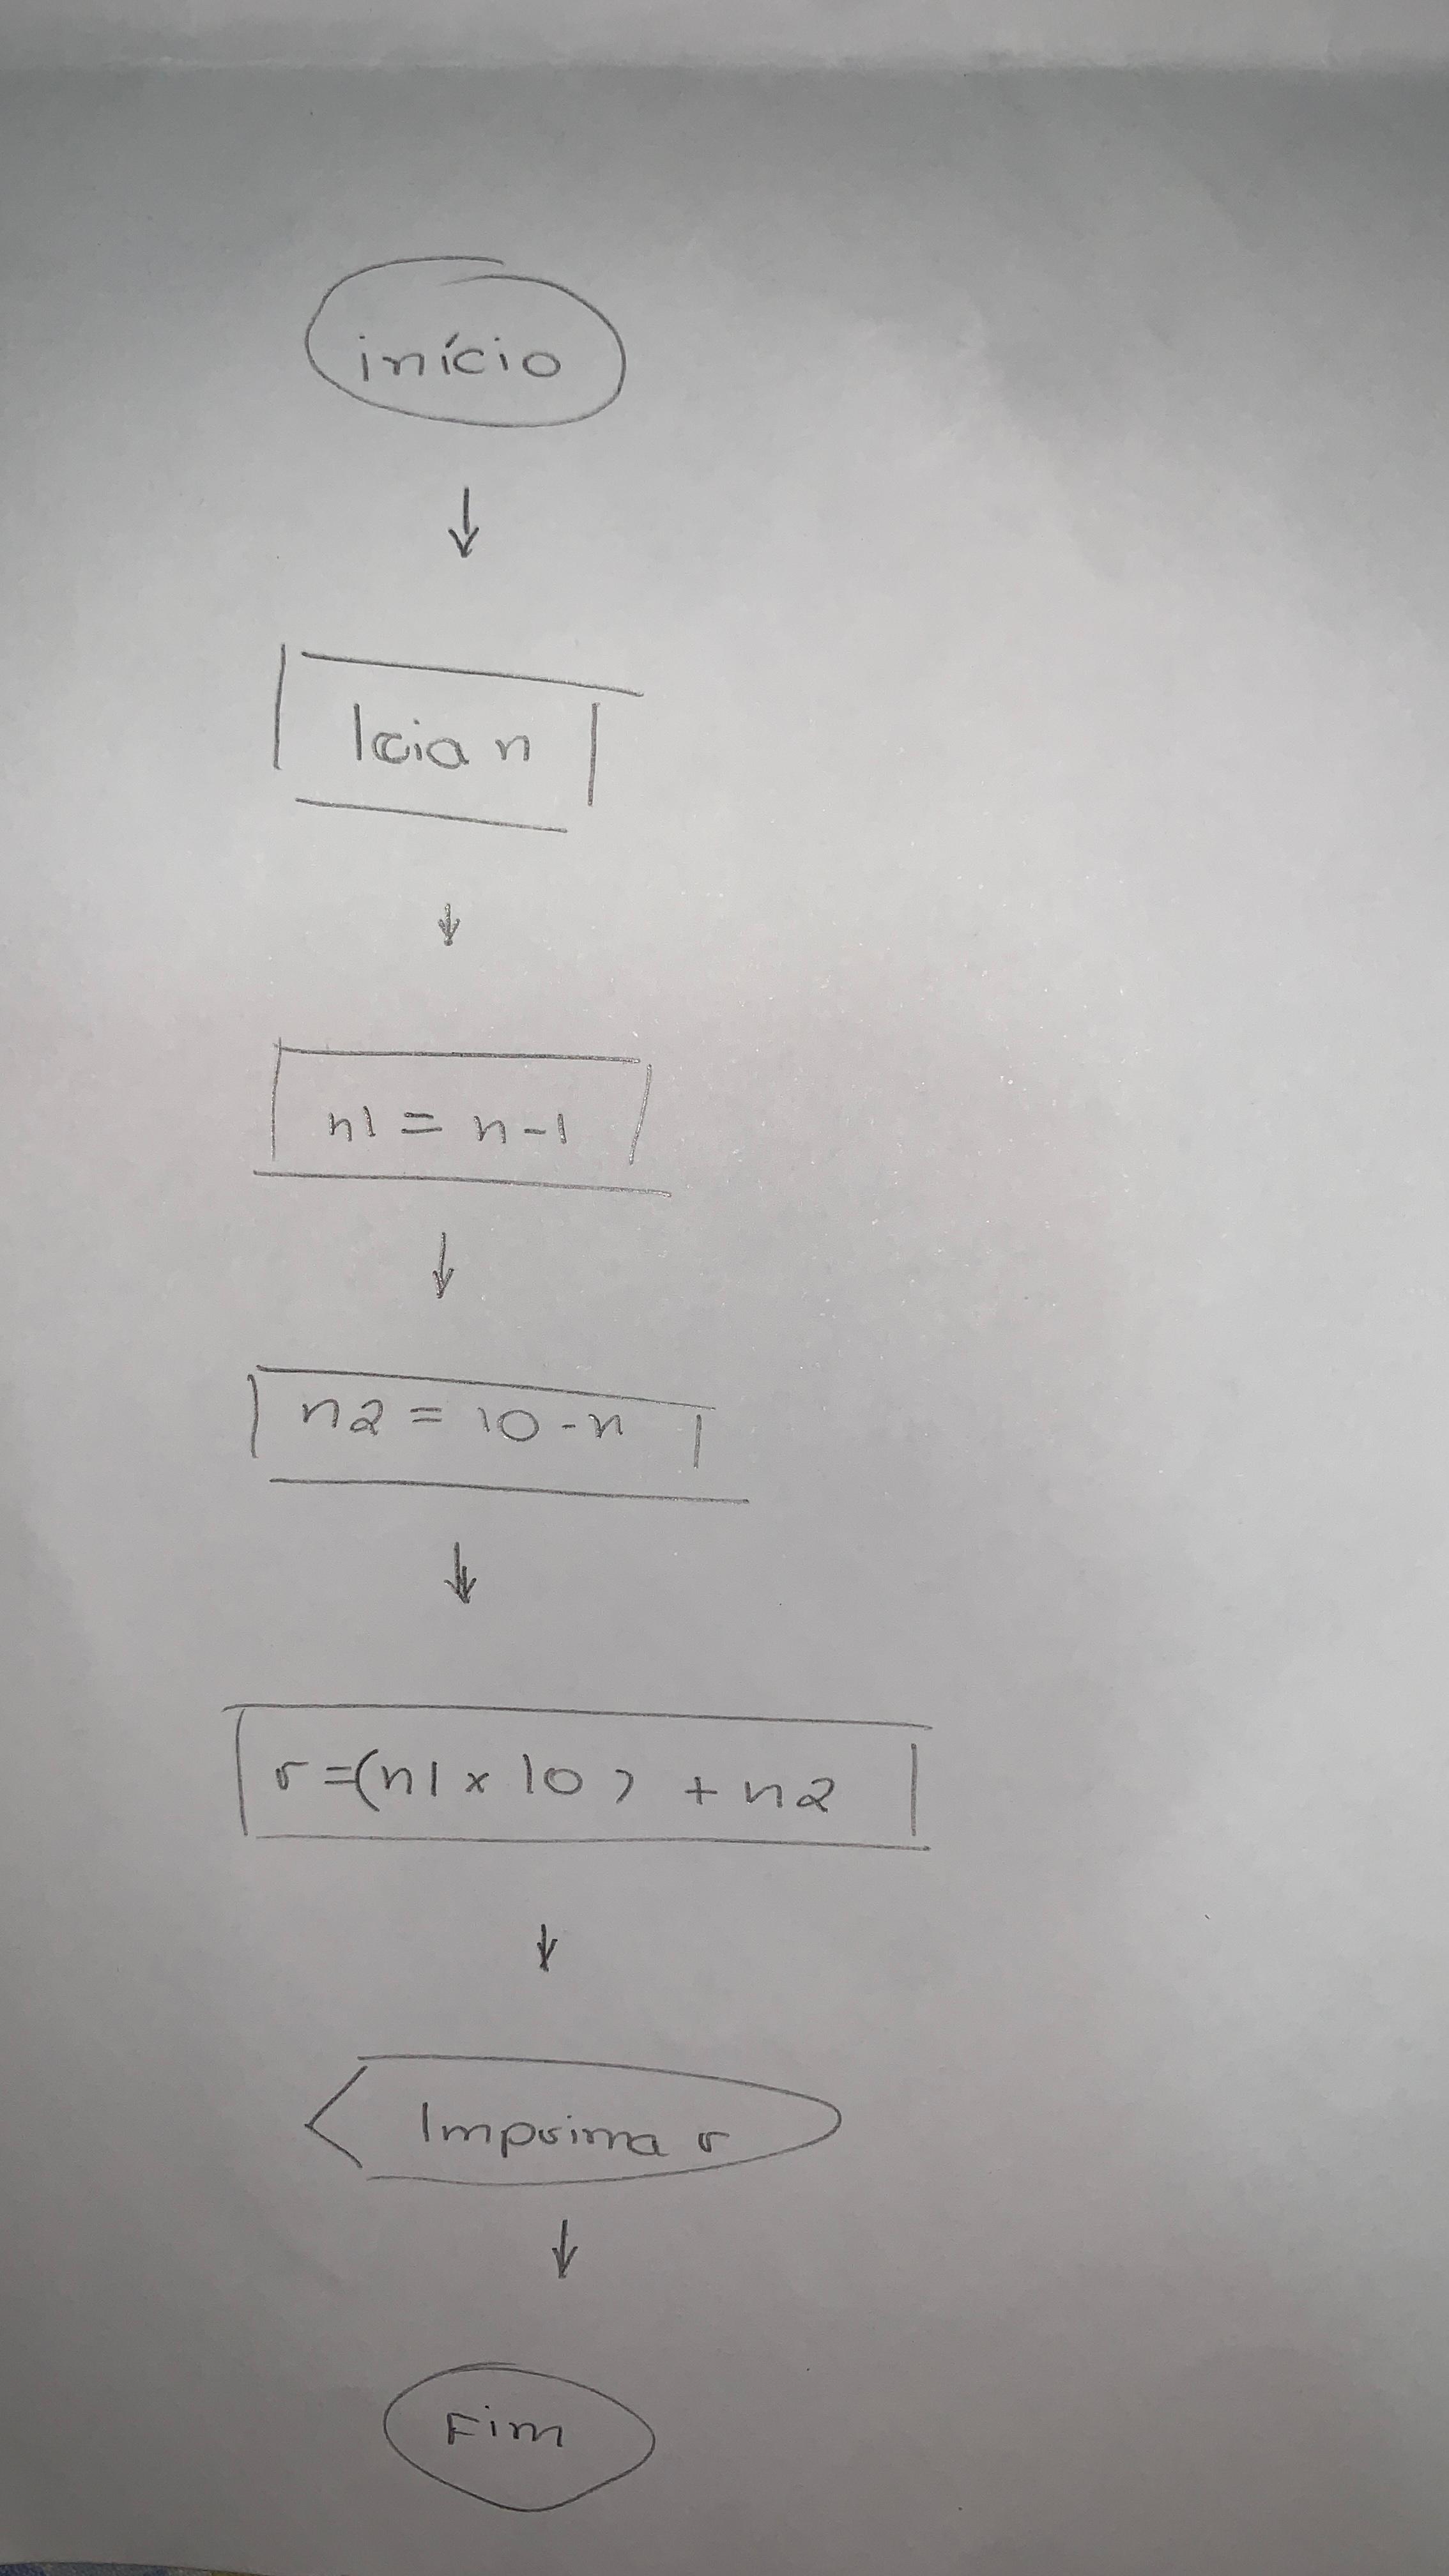 início
leia n
n1 = n-1
n2 = 10-n
r=(n1 x 10) + n2
Imprima r
Fim